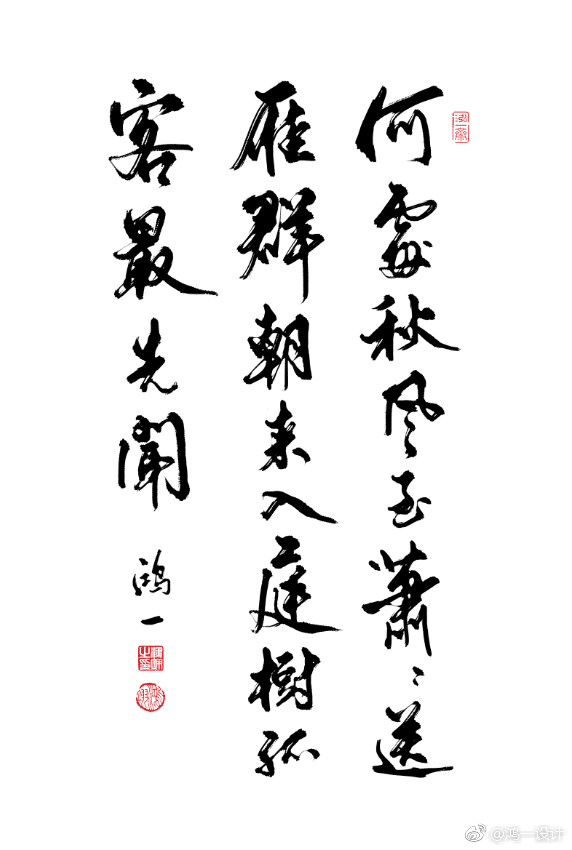 何處秋風至蕭〻送
雁群朝来入庭樹孤
客最先聞
鴻一
@鸿一设计